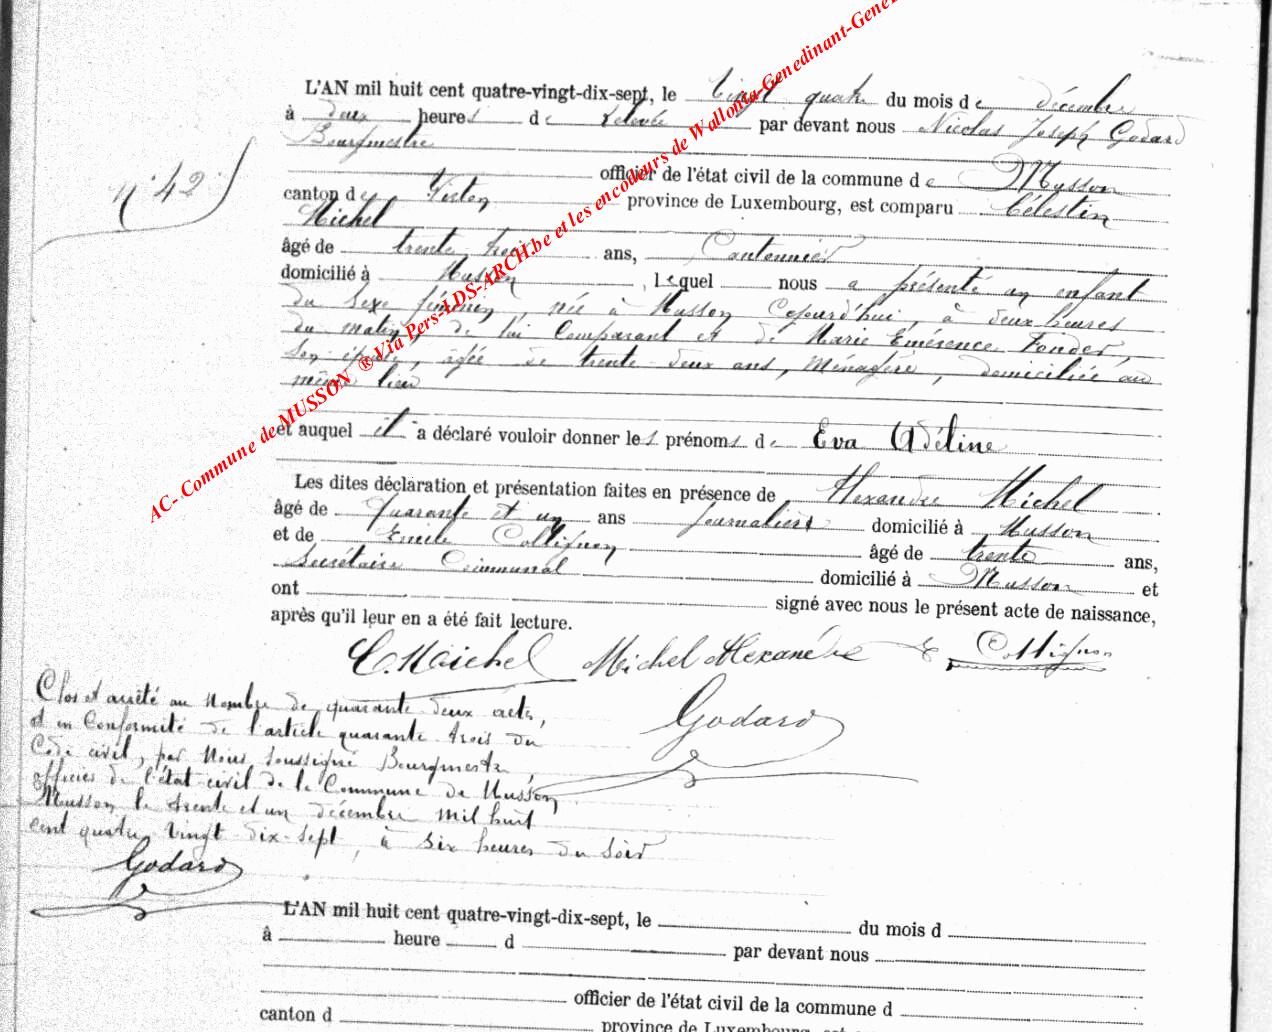 L'AN mil huit cent quatre-vingt-dix-sept, le vingt quatre du mois de décembre
à deux heures de relevée par devant nous Nicolas Joseph Godard
Bourgmestre
n° 42
officier de l'état civil de la commune de Musson
canton de Virton province de Luxembourg, est comparu Célestin
Michel
âgé de trente trois ans, Cantonnier
domicilié à Musson, lequel nous a présenté un enfant
du sexe féminin, née à Musson cejourd'hui, à deux heures
du matin, de lui Comparant et de Marie Emérence Fonder,
son épouse, âgée de trente deux ans, Ménagère, domiciliée au
même lieu
et auquel il a déclaré vouloir donner les prénoms de Eva Adéline
Les dites déclaration et présentation faites en présence de Alexandre Michel
âgé de Quarante et un ans journalier domicilié à Musson
et de Emile Collignon âgé de trente ans,
Secrétaire Communal domicilié à Musson et
ont signé avec nous le présent acte de naissance,
après qu'il leur en a été fait lecture.
C. Michel Michel Alexandre E. Collignon
Godard
Clos et arrêté au Nombre de quarante deux actes,
et en Conformité de l'article quarante trois du
Code civil, par Nous Soussigné Bourgmestre,
officier de l'état civil de la Commune de Musson
Musson le trente et un décembre mil huit
cent quatre vingt dix-sept, à six heures du soir
Godard
L'AN mil huit cent quatre-vingt-dix-sept, le du mois d
à heure d par devant nous
officier de l'état civil de la commune d
canton d province de Luxembourg, est
AC- Commune de MUSSON ® Via Pers-LDS-ARCH.be et les encodeurs de Wallonia-Genedinant-Gene